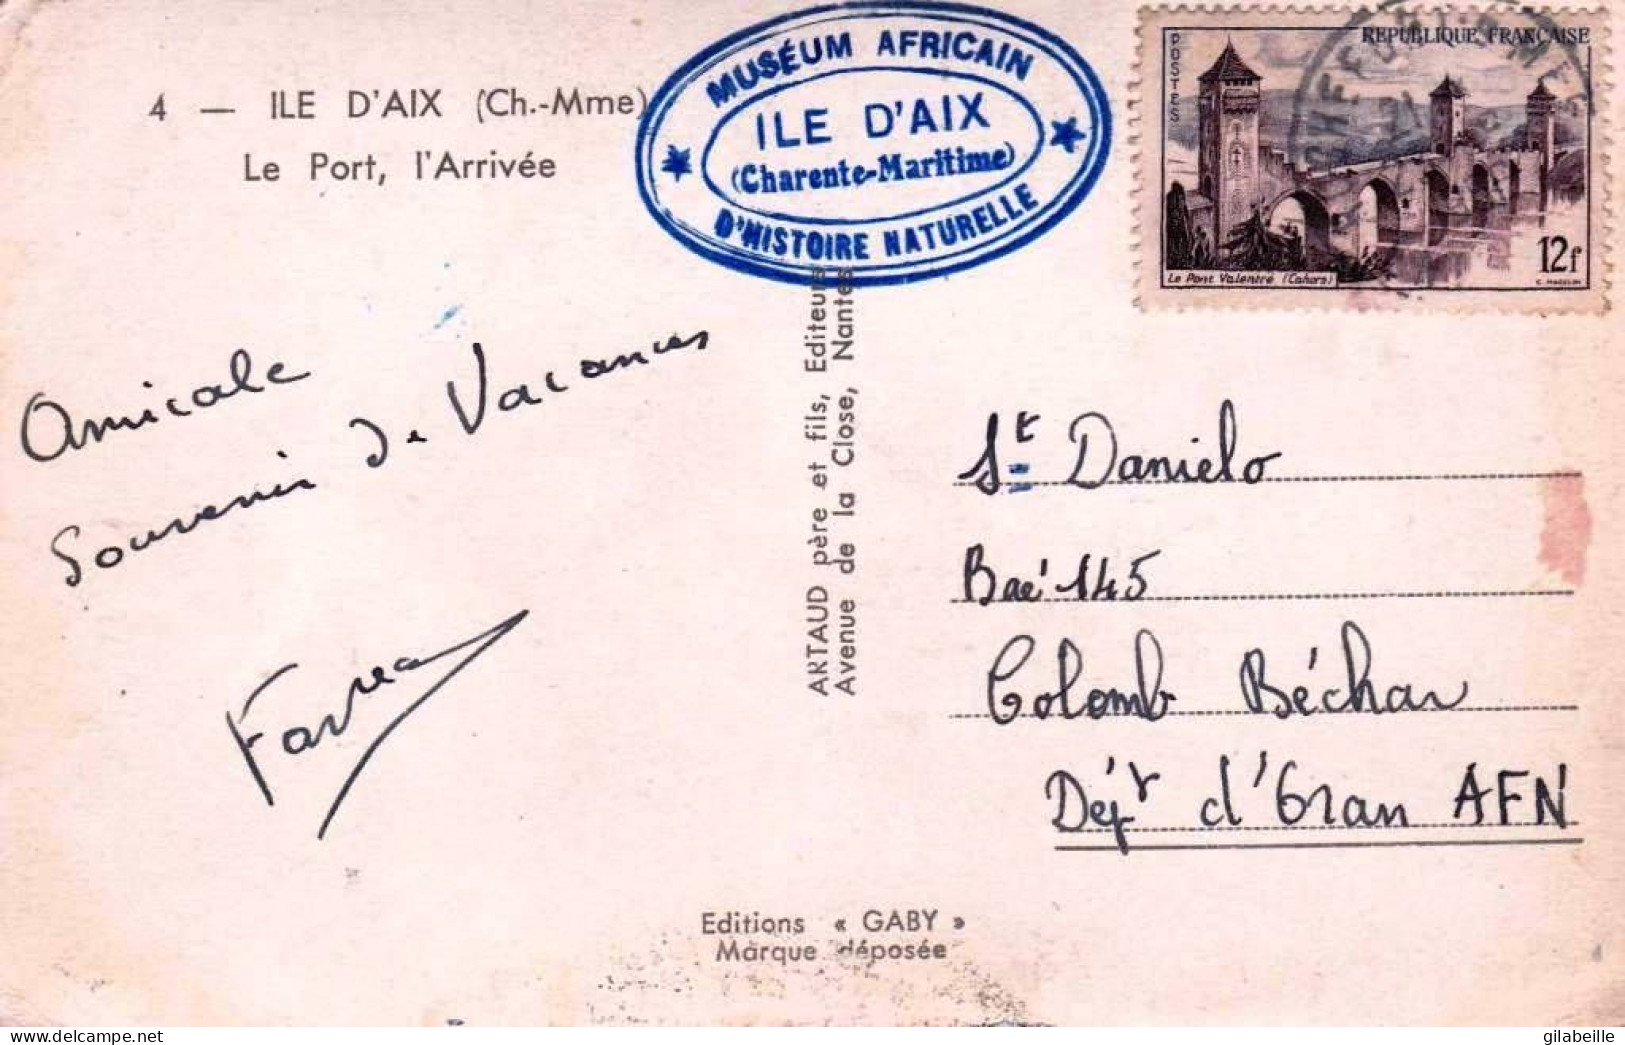 4 — ILE D'AIX (Ch.-Mme)
Le Port, l'Arrivée
MUSÉUM AFRICAIN
ILE D'AIX
(Charente-Maritime)
D'HISTOIRE NATURELLE
POSTES
REPUBLIQUE FRANÇAISE
12f
Le Pont Valentré (Cahors)
Amicale
Souvenir de Vacances
ARTAUD père et fils, Editeurs
Avenue de la Close, Nantes
St Danielo
Baé 145
Colomb Béchar
Dépt d'Oran AFN
Editions « GABY »
Marque déposée
gilabeille